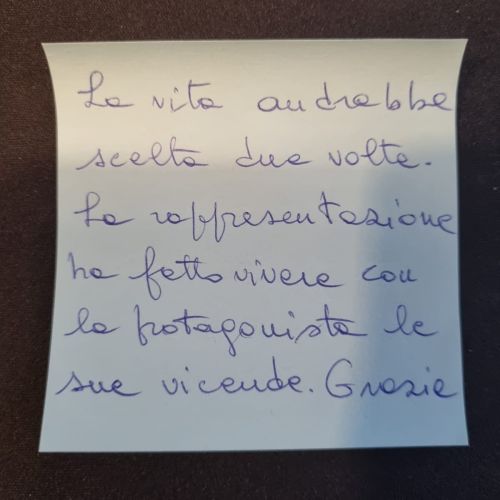 La vita andrebbe
scelta due volte.
La rappresentazione
ha fatto vivere con
la protagonista le
sue vicende. Grazie